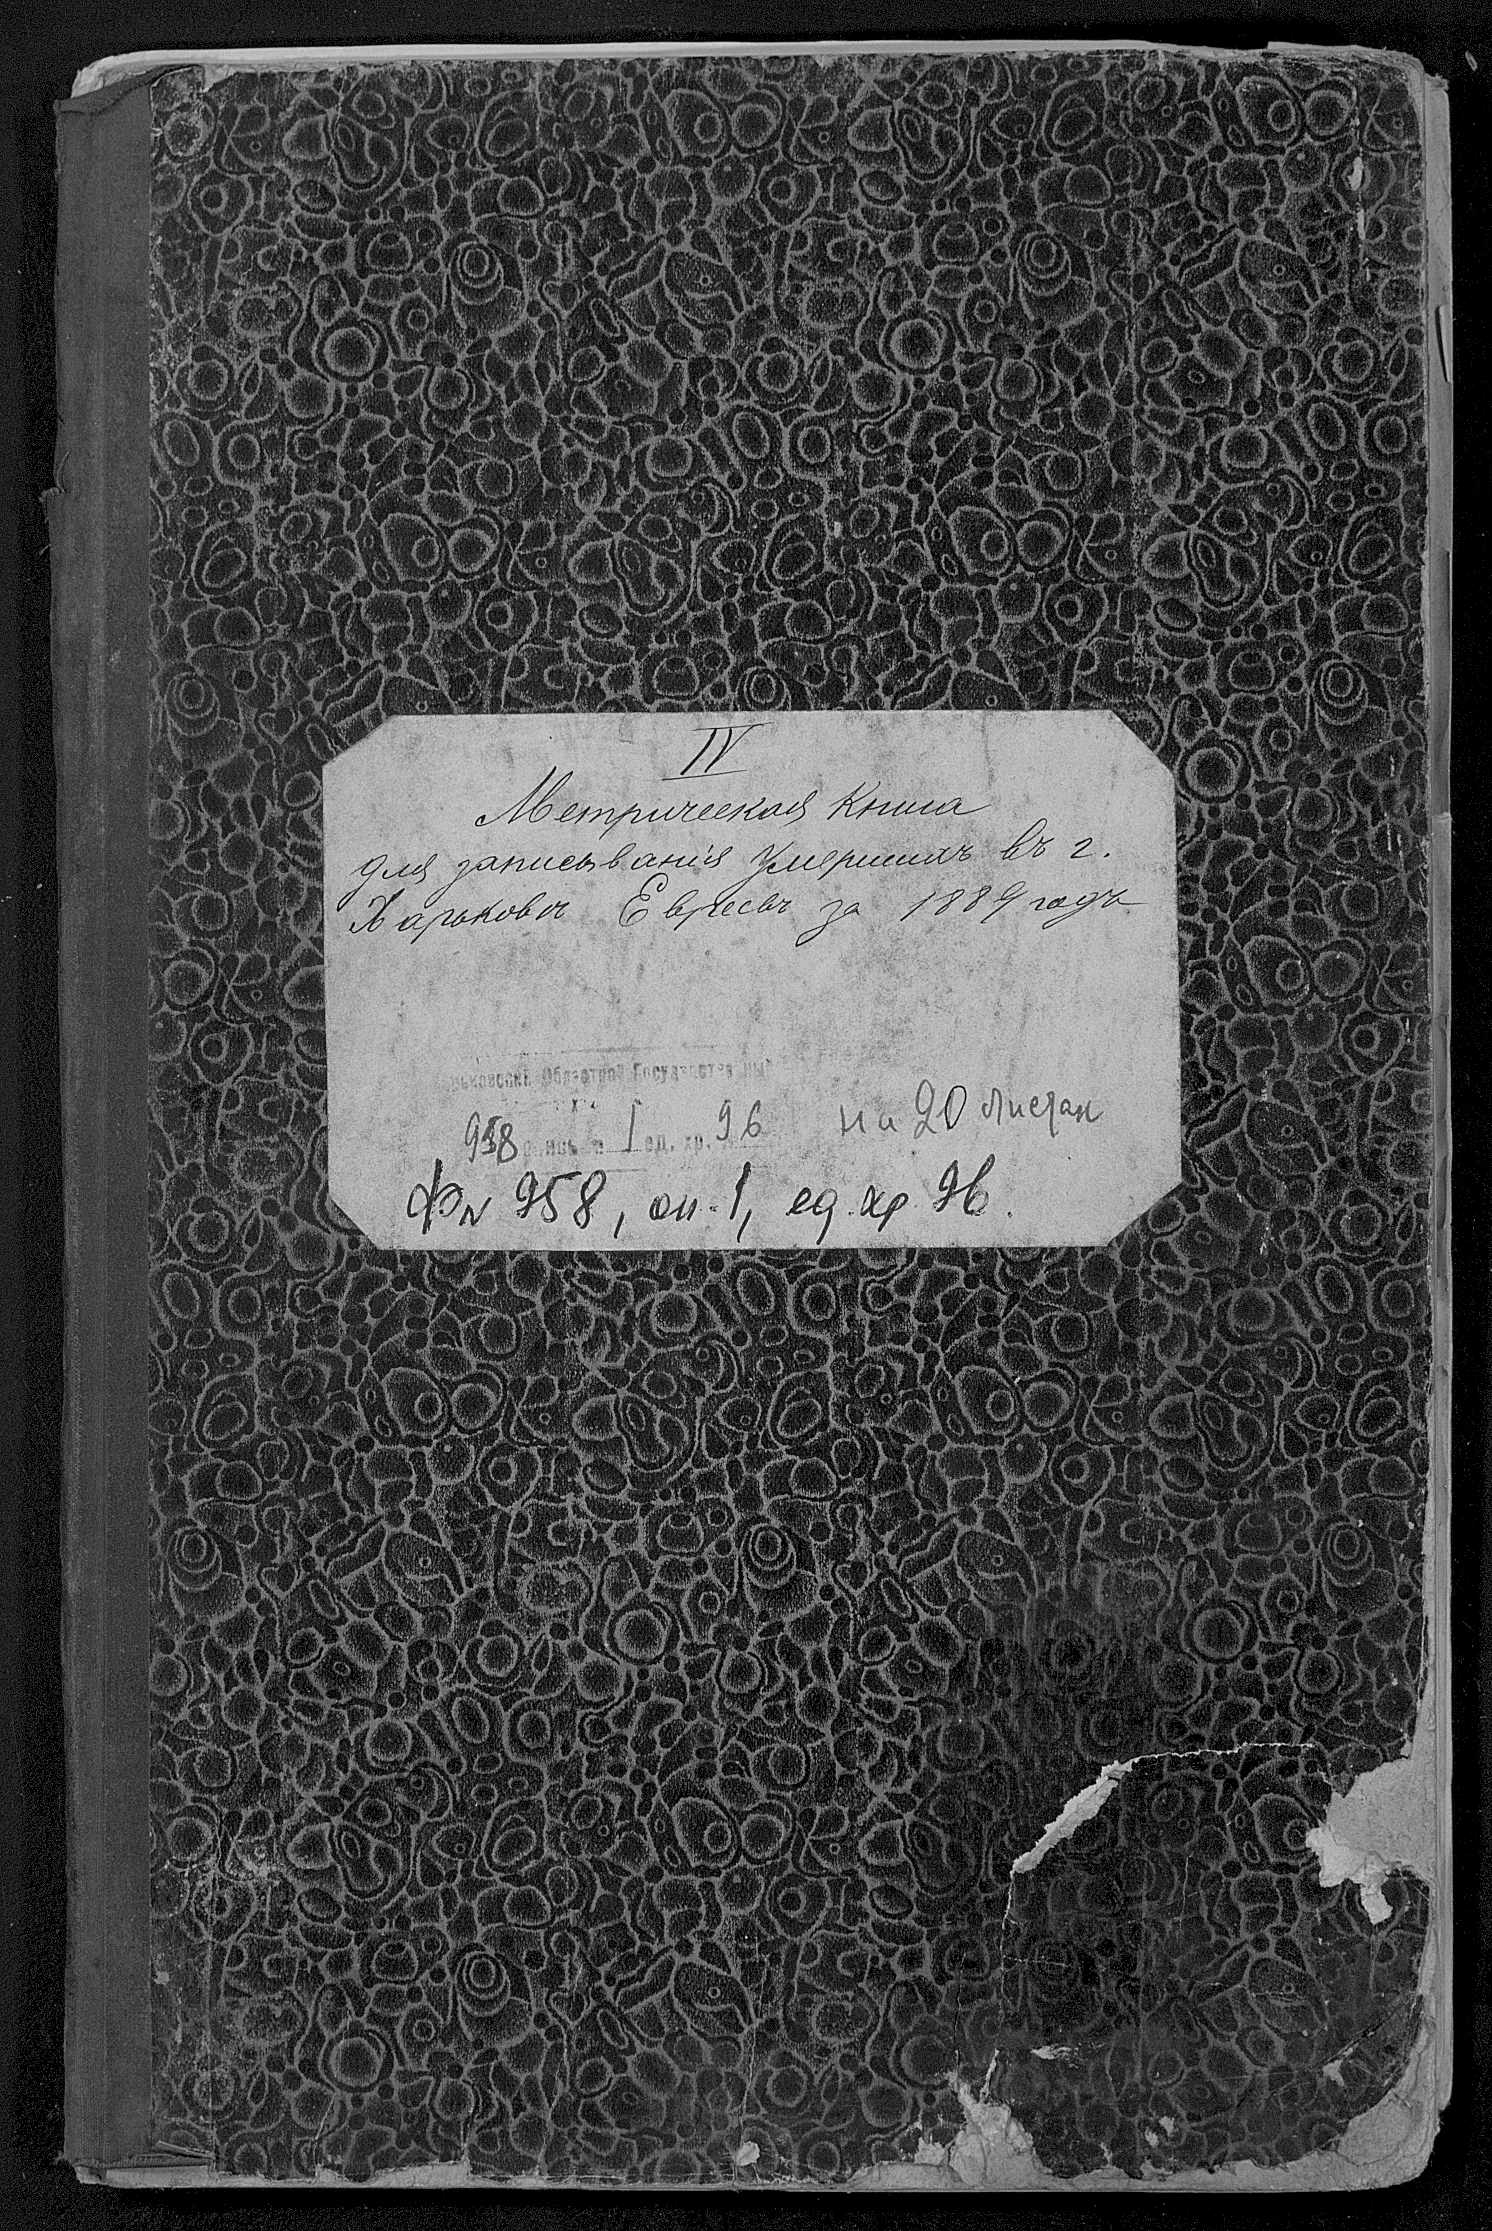 IV
Метрическая Книга
для записыванія умершихъ въ г.
Харьковѣ Евреевъ за 1889 годъ
Областной Государственный
958 1 ед. хр. 96 на 20 листах
Ф № 958, оп. 1, ед. хр. 96.